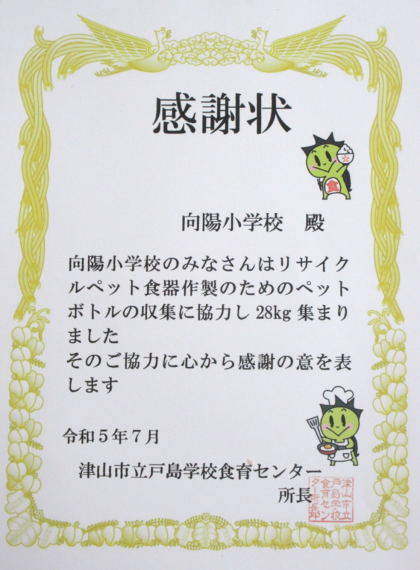 感謝状
食
向陽小学校　殿
向陽小学校のみなさんはリサイク
ルペット食器作製のためのペット
ボトルの収集に協力し 28kg 集まり
ました
そのご協力に心から感謝の意を表
します
令和５年７月
津山市立戸島学校食育センター
所長